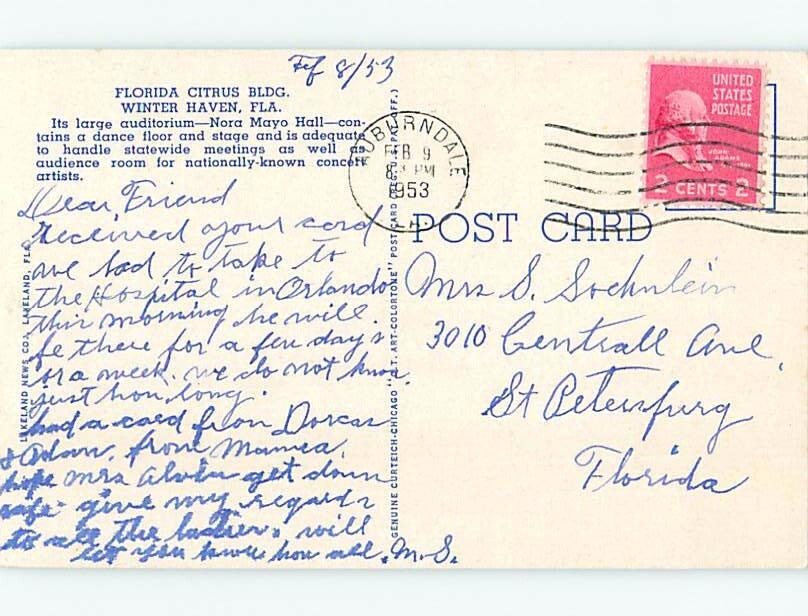 Fef 8/53
FLORIDA CITRUS BLDG.
WINTER HAVEN, FLA.
Its large auditorium—Nora Mayo Hall—con-
tains a dance floor and stage and is adequate
to handle statewide meetings as well as
audience room for nationally-known concert
artists.
Dear Friend
Received your card
we had to take to
the Hospital in Orlando
this morning, he will
fe there for a few days
or a week. we do not know
just how long.
had a card from Dorcas
& Adam, from Mamea.
hope Mrs Alvin get down
safe give my regards
to all the ladies. will
let you know how all. M.S.
LAKELAND NEWS CO., LAKELAND, FLA.
GENUINE CURTEICH-CHICAGO "C.T. ART-COLORTONE" POST CARD (REG. U.S. PAT. OFF.)
AUBURNDALE
FEB 9
8 PM
1953
UNITED
STATES
POSTAGE
JOHN
ADAMS
2 CENTS 2
POST CARD
Mrs S.
3010 Centrall Ave,
St Petersfurg
Florida